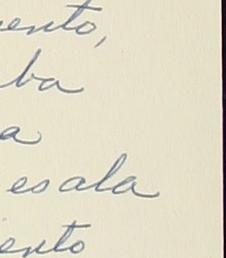 ento,
ba
a
esala
ento